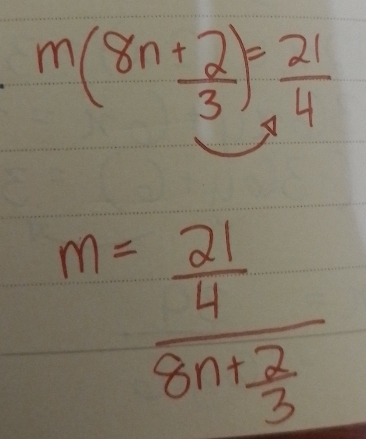 m(8n + 2/3) = 21/4
m = 21/4
8n + 2/3